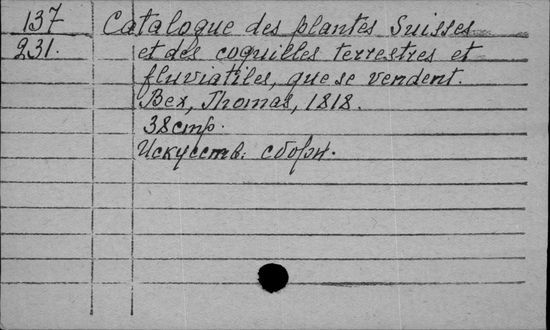 137 Catalogue des plantes Suisses
231. et des coquilles terrestres et
fluviatiles, que se vendent.
Bex, Thomas, 1818.
38 стр.
Искусств. сборн.